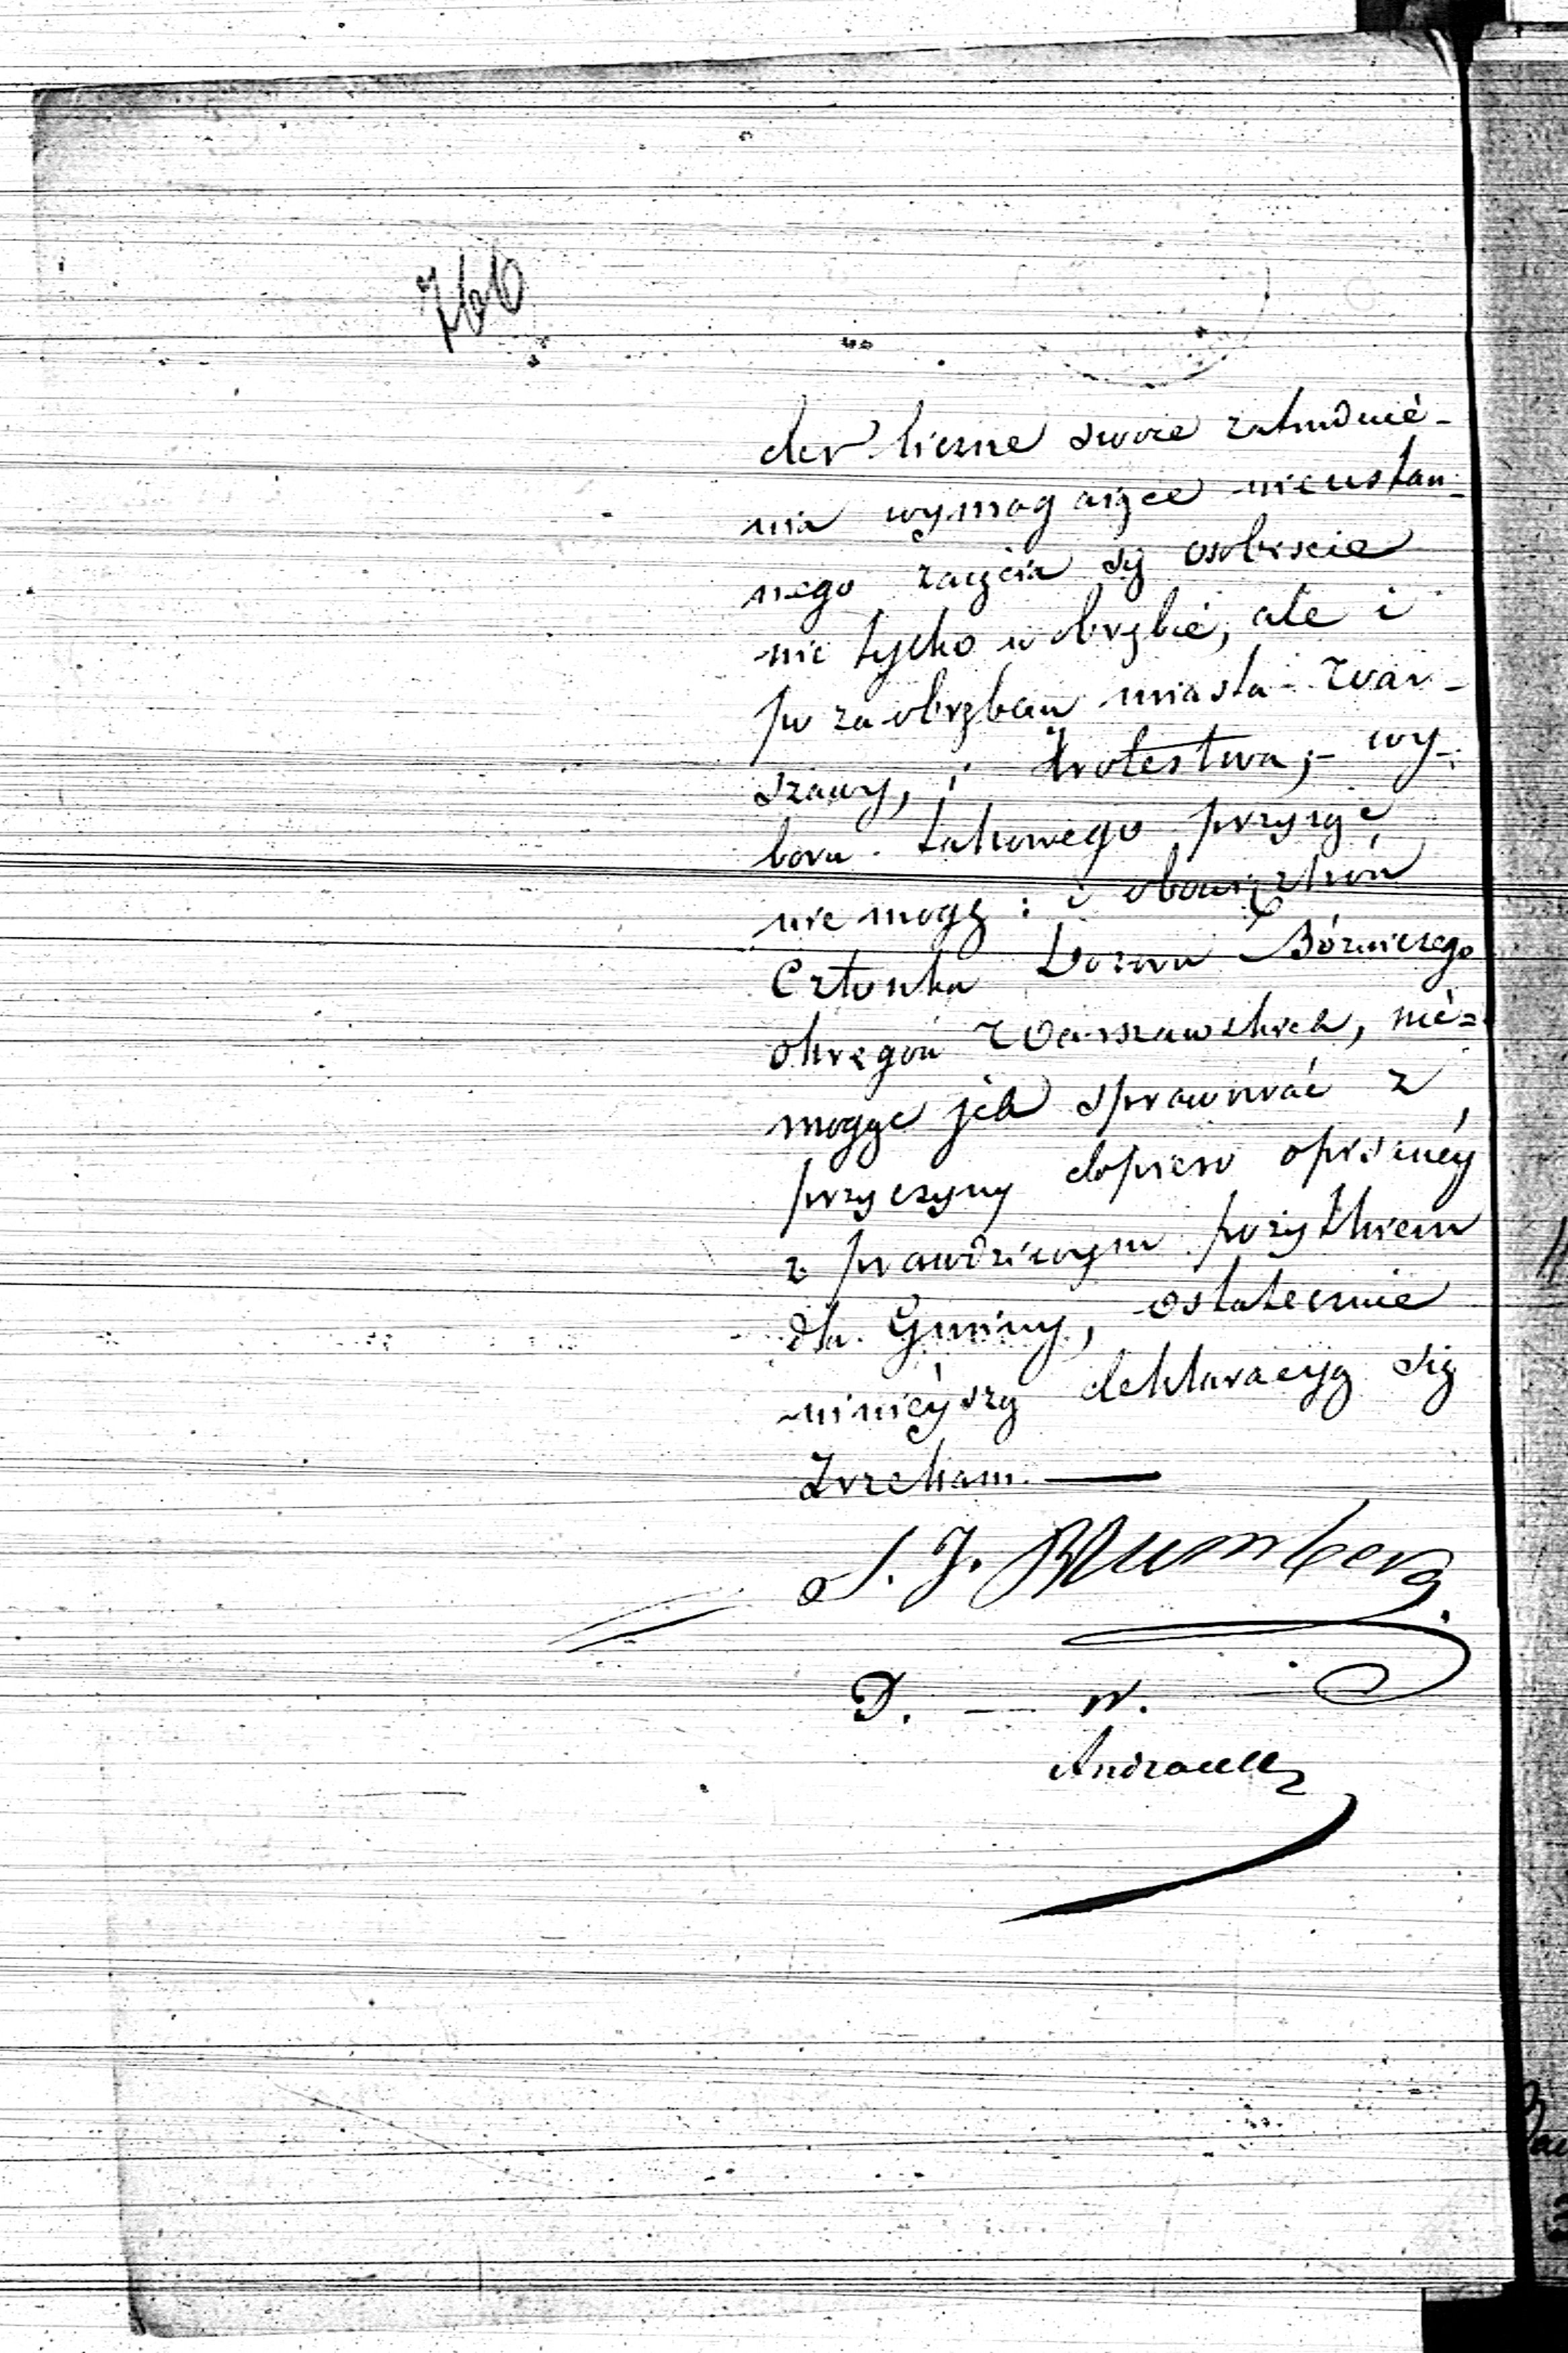 760
dex liczne swoie zatrudnié-
nia wymagaiące nieustan-
nego zaięcia się osobiscie
nie tylko w obrębié, ale i
po za obrębem miasta War-
szawy, i Krolestwa; - wy-
boru takowego przyiąć
nie mogę: i obowiązków
Członka Dozoru Bóżniczego
okręgów Warszawskich, nié=
mogąc ich sprawować z
przyczyny dopiero opisanéy
z prawdziwym pożytkiem
dla Gminy, ostatecznie
ninieyszą deklaracyą się
Zrzekam. —
S. J. Blumberg
D. — W.